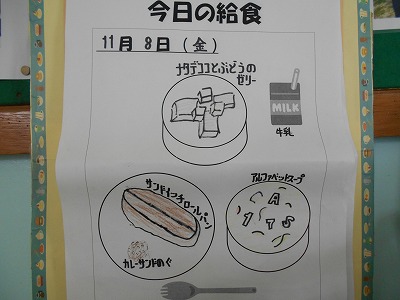 今日の給食
11月 8日 (金)
ナタデココとぶどうの
ゼリー
MILK
牛乳
サンドイッチロールパン
カレーサンドのぐ
アルファベットスープ
A
1 T S